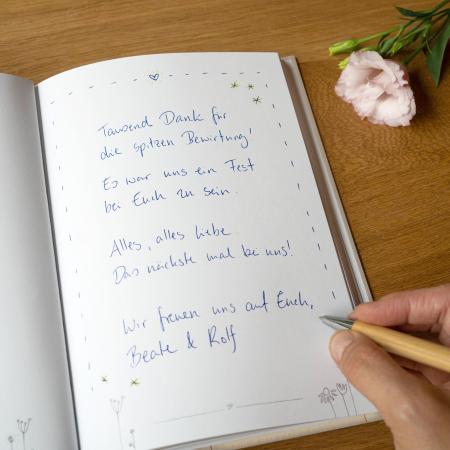 Tausend Dank für
die spitzen Bewirtung!
Es war uns ein Fest
bei Euch zu sein.
Alles, alles Liebe
Das nächste mal bei uns!
Wir freuen uns auf Euch,
Beate & Rolf